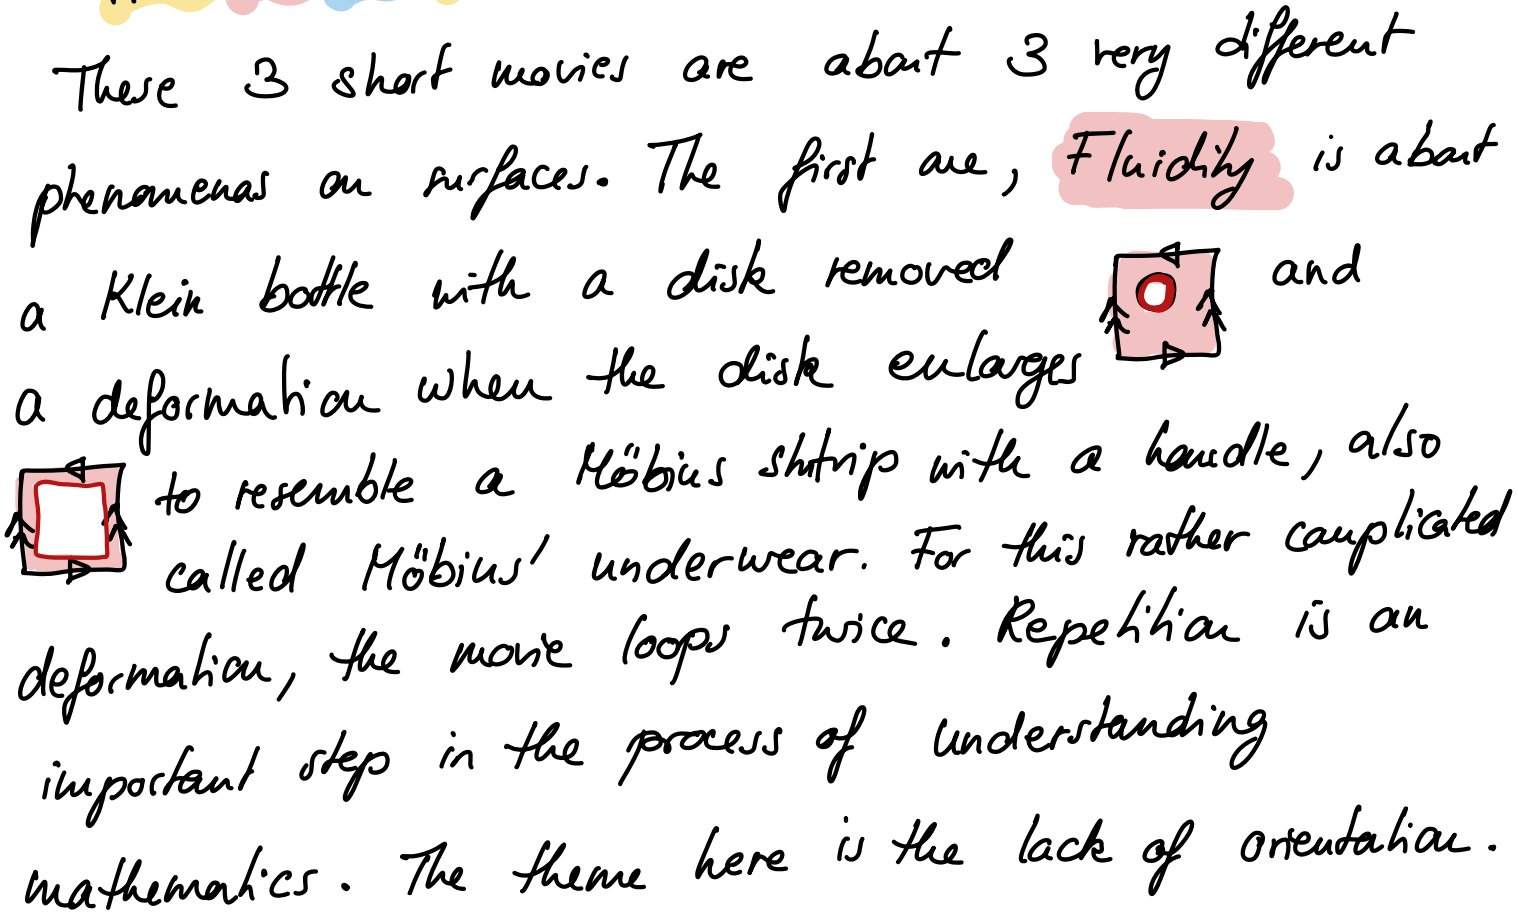 These 3 short movies are about 3 very different
phenomenas on surfaces. The first one, Fluidity is about
a Klein bottle with a disk removed and
a deformation when the disk enlarges
to resemble a Möbius shtrip with a handle, also
called Möbius' underwear. For this rather complicated
deformation, the movie loops twice. Repetition is an
important step in the process of understanding
mathematics. The theme here is the lack of orientation.